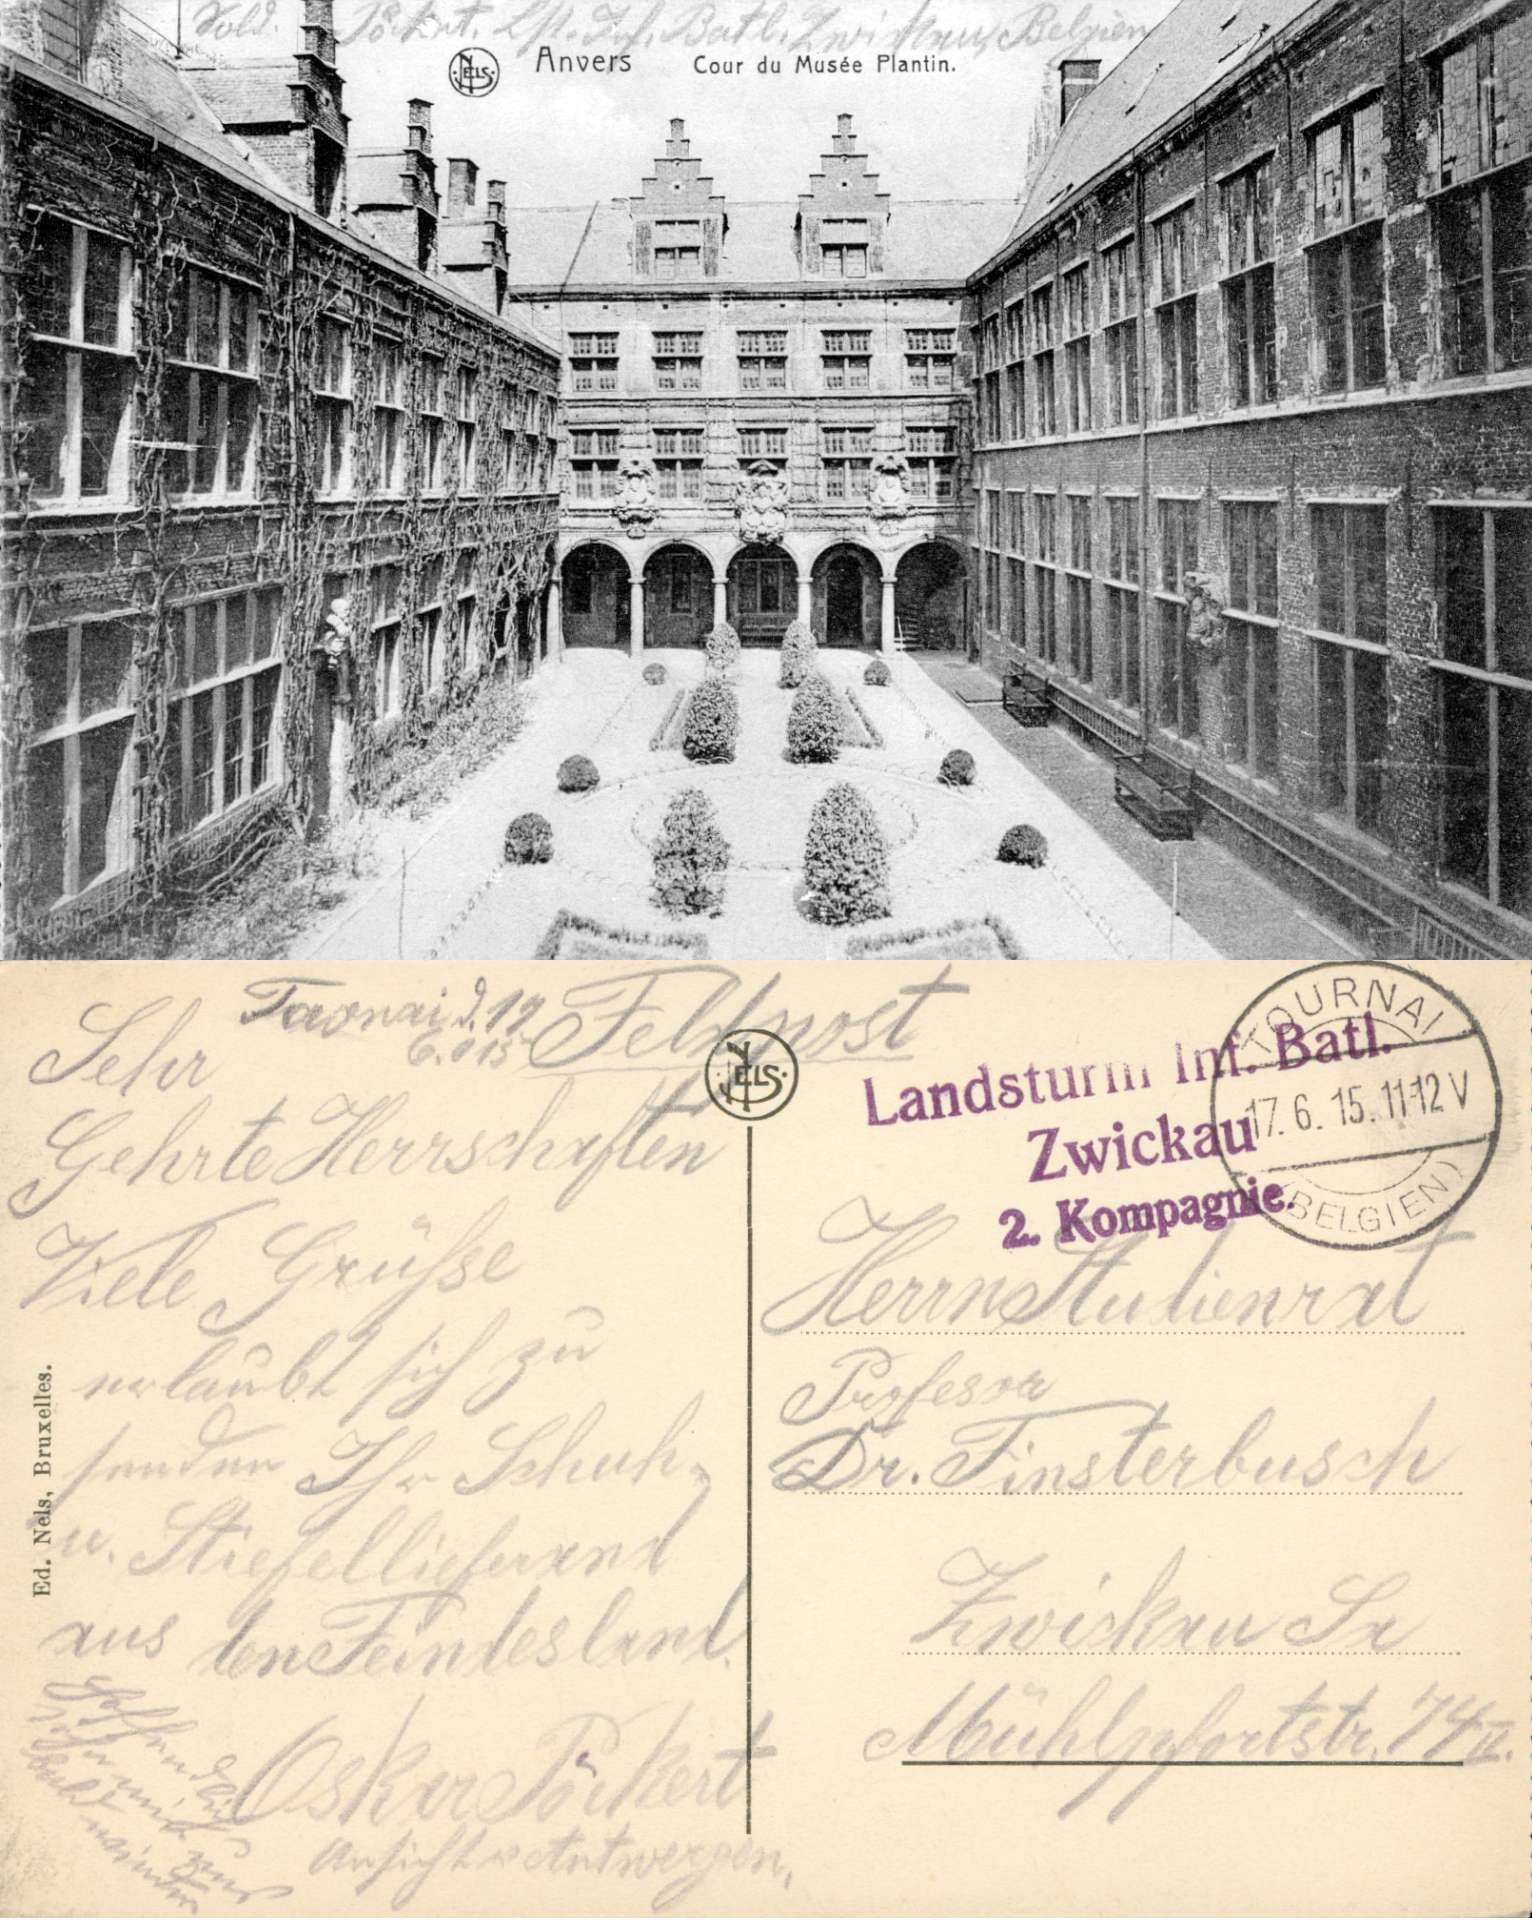 Sold. Pöckert, Lst. Inf. Batl. Zwickau, Belgien
NELS
Anvers Cour du Musée Plantin.
Feldpost
Tournai d. 17
6. 015
Sehr
Gehrte Herrschaften
Viele Grüsse
erlaubt sich zu
senden Ihr Schuh-
u. Stiefellieferand
aus den Feindesland.
Oskar Pöckert
Ansicht v Antwerpen.
Hoffendlich
sehn wir uns
bald wieder
Ed. Nels, Bruxelles.
NELS
TOURNAI
17. 6. 15. 11-12 V
(BELGIEN)
Landsturm Inf. Batl.
Zwickau
2. Kompagnie.
Herrn Studienrat
Profesor
Dr. Finsterbusch
Zwickau Sa
Mühlpfortstr. 74 II.